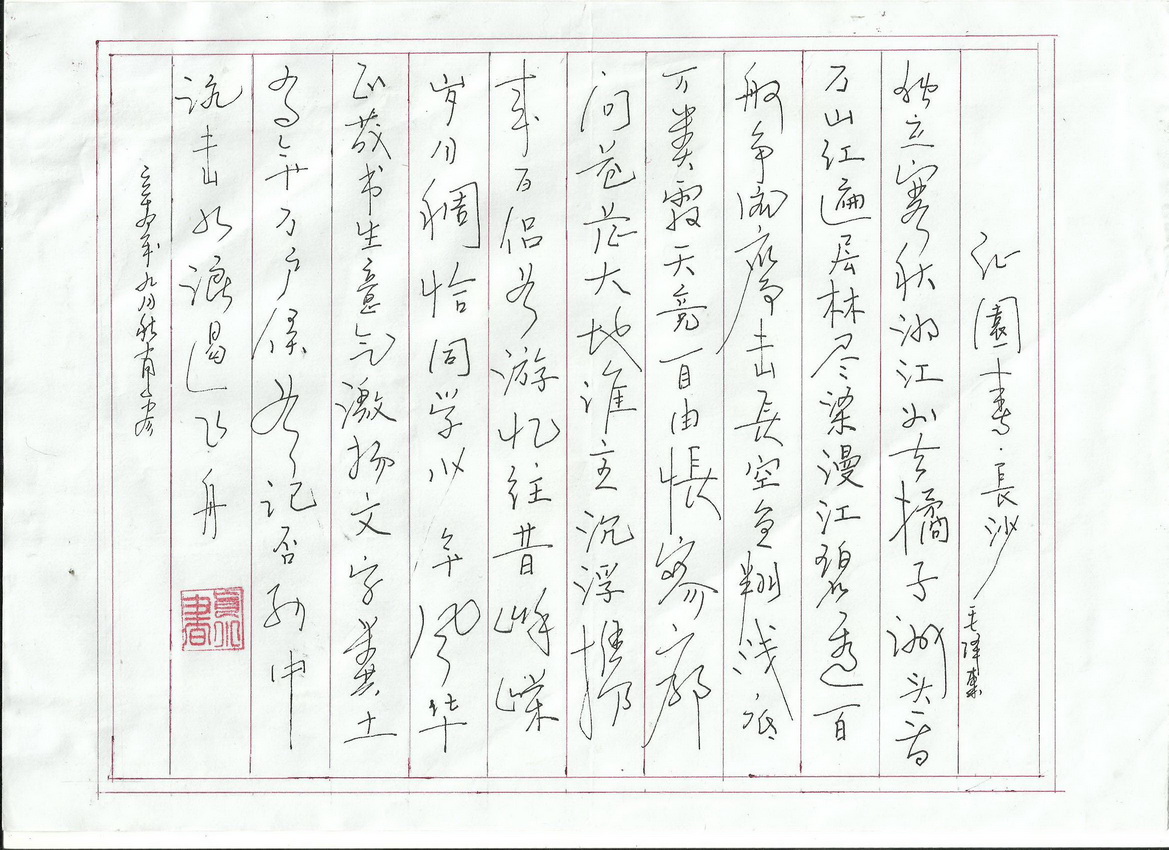 沁園春·長沙 毛泽東
独立寒秋湘江北去橘子洲头看
万山红遍层林尽染漫江碧透百
舸争流鹰击長空鱼翔浅底
万类霜天竞自由悵寥廓
问苍茫大地谁主沉浮携
来百侣曾游忆往昔峥嵘
岁月稠恰同学少年风华
正茂书生意气激扬文字粪土
当年万户侯曾记否到中
流击水浪遏飞舟
年九月秋